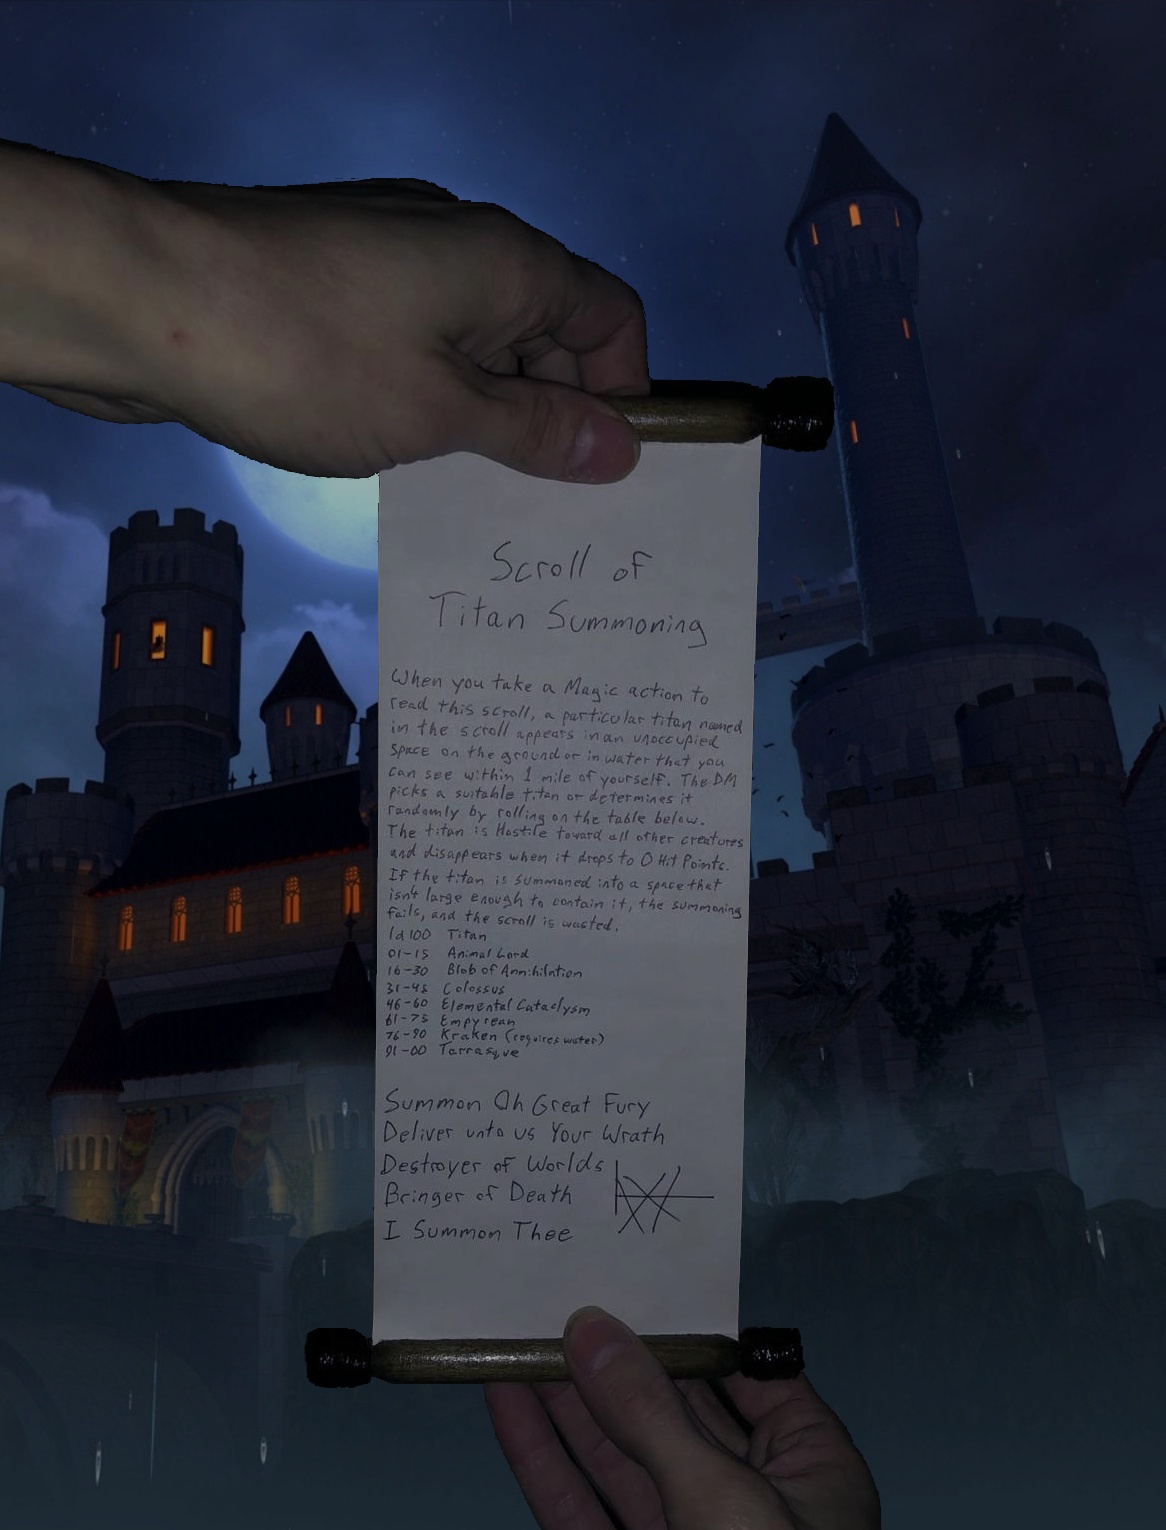 Scroll of
Titan Summoning
When you take a Magic action to
read this scroll, a particular titan named
in the scroll appears in an unoccupied
space on the ground or in water that you
can see within 1 mile of yourself. The DM
picks a suitable titan or determines it
randomly by rolling on the table below.
The titan is Hostile toward all other creatures
and disappears when it drops to 0 Hit Points.
If the titan is summoned into a space that
isn't large enough to contain it, the summoning
fails, and the scroll is wasted.
1d100 Titan
01-15 Animal Lord
16-30 Blob of Annihilation
31-45 Colossus
46-60 Elemental Cataclysm
61-75 Empyrean
76-90 Kraken (requires water)
91-00 Tarrasque
Summon Oh Great Fury
Deliver unto us Your Wrath
Destroyer of Worlds
Bringer of Death
I Summon Thee